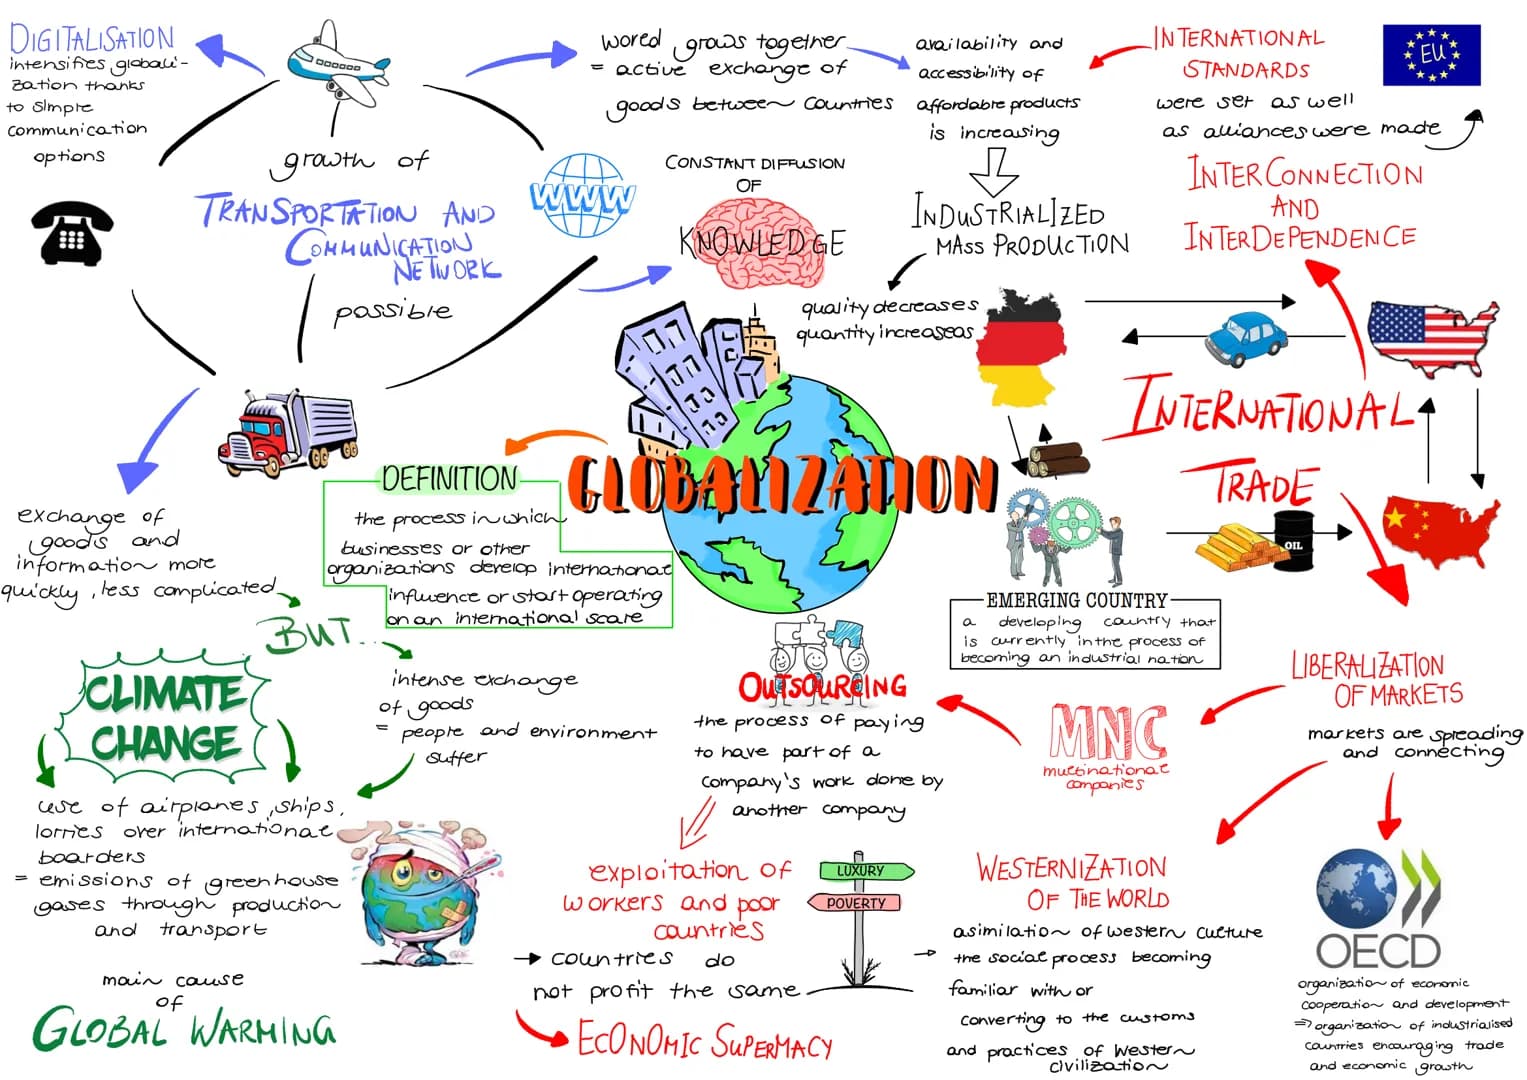 DIGITALISATION
intensifies globali-
zation thanks
to simple
communication
options
growth of
TRANSPORTATION AND
COMMUNICATION
NETWORK
possible
WWW
wored grows together
= active exchange of
goods between countries
availability and
accessibility of
affordable products
is increasing
INTERNATIONAL
STANDARDS
were set as well
as alliances were made
EU
INTERCONNECTION
AND
INTERDEPENDENCE
CONSTANT DIFFUSION
OF
KNOWLEDGE
INDUSTRIALIZED
MASS PRODUCTION
quality decreases
quantity increaseas
INTERNATIONAL
TRADE
OIL
GLOBALIZATION
DEFINITION
the process in which
businesses or other
organizations develop international
influence or start operating
on an international scare
exchange of
goods and
information more
quickly, less complicated
BUT...
intense exchange
of goods
= people and environment
suffer
CLIMATE
CHANGE
use of airplanes, ships,
lorries over international
boarders
= emissions of greenhouse
gases through production
and transport
main cause
of
GLOBAL WARMING
EMERGING COUNTRY
a developing country that
is currently in the process of
becoming an industrial nation
OUTSOURCING
the process of paying
to have part of a
company's work done by
another company
MNC
multinational
companies
LIBERALIZATION
OF MARKETS
markets are spreading
and connecting
exploitation of
workers and poor
countries
LUXURY
POVERTY
→ countries do
not profit the same
ECONOMIC SUPERMACY
WESTERNIZATION
OF THE WORLD
asimilation of western culture
→ the social process becoming
familiar with or
converting to the customs
and practices of Western
civilization
OECD
organization of economic
cooperation and development
=> organization of industrialised
countries encouraging trade
and economic growth